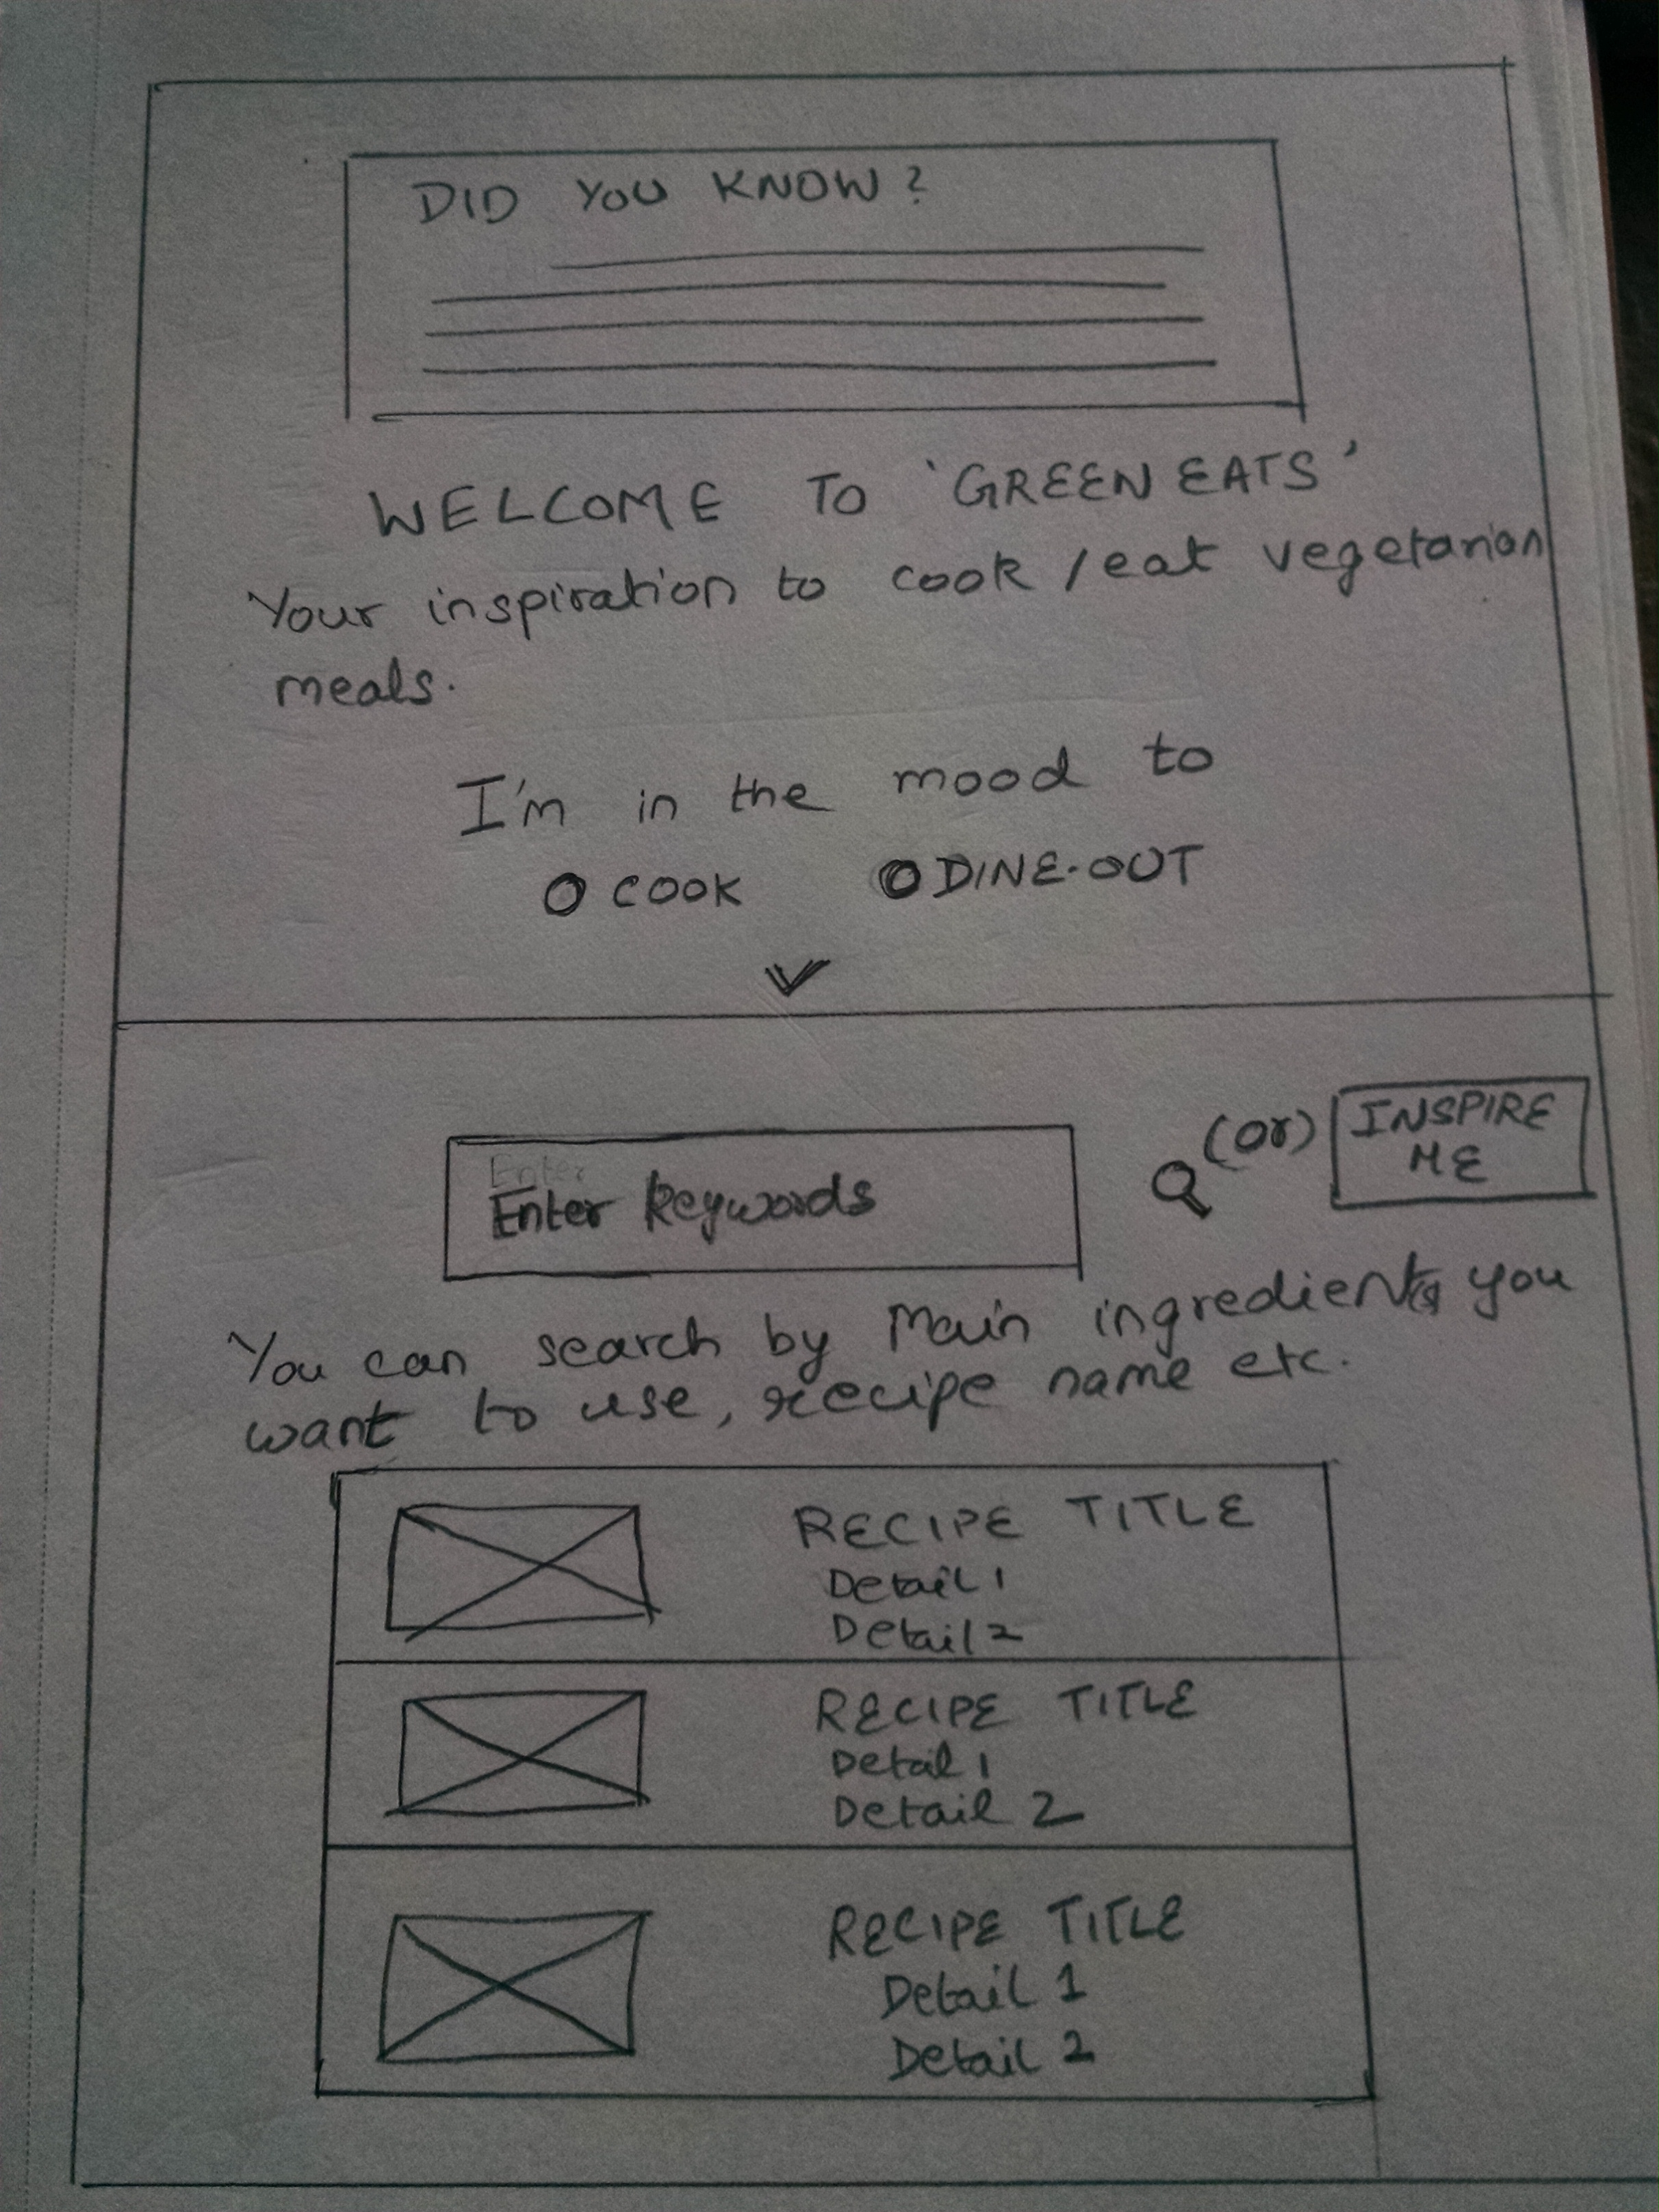 DID YOU KNOW?
WELCOME TO 'GREEN EATS'
Your inspiration to cook / eat vegetarian
meals.
I'm in the mood to
COOK DINE-OUT
(or) INSPIRE
ME
Enter
Enter keywords
You can search by Main ingredients you
want to use, recipe name etc.
RECIPE TITLE
Detail 1
Detail 2
RECIPE TITLE
Detail 1
Detail 2
RECIPE TITLE
Detail 1
Detail 2